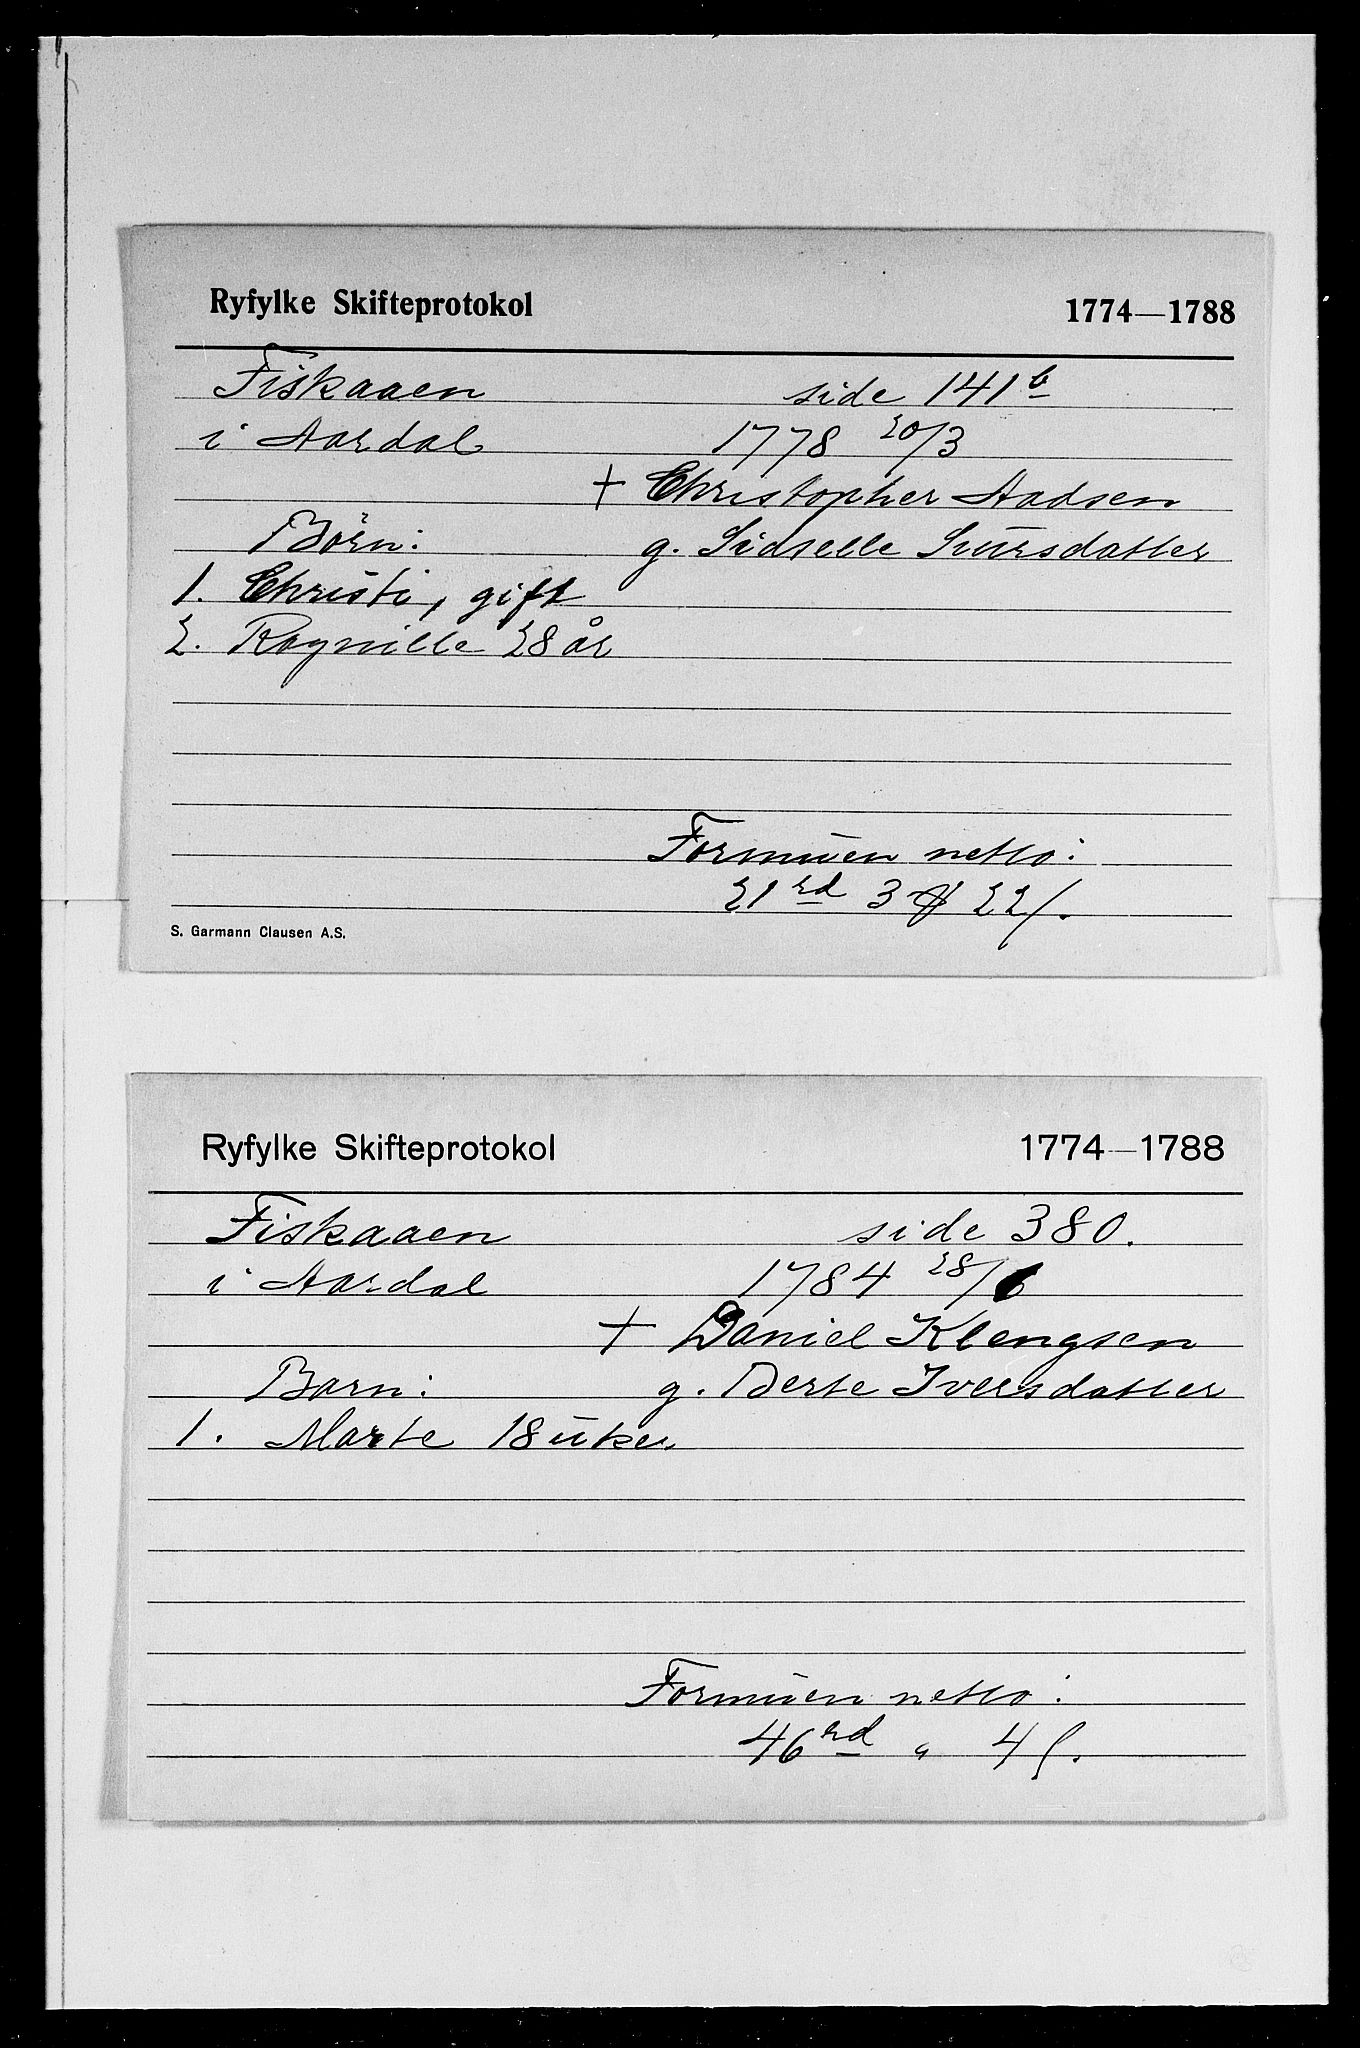 Ryfylke Skifteprotokol 1774—1788
Fiskaaen side 141b
i Aardal 1778 20/3
+ Christopher Aadsen
Börn: g. Sidselle Siursdatter
1. Christi, gift
2. Ragnille 28 år
Formuen netto:
21 rd 3 22
S. Garmann Clausen A.S.
Ryfylke Skifteprotokol 1774—1788
Fiskaaen side 380.
i Aardal 1784 28/6
+ Daniel Klengsen
Barn: g. Berte Iversdatter
1. Marte 18 uker
Formuen netto:
46 rd " 4 ſ.